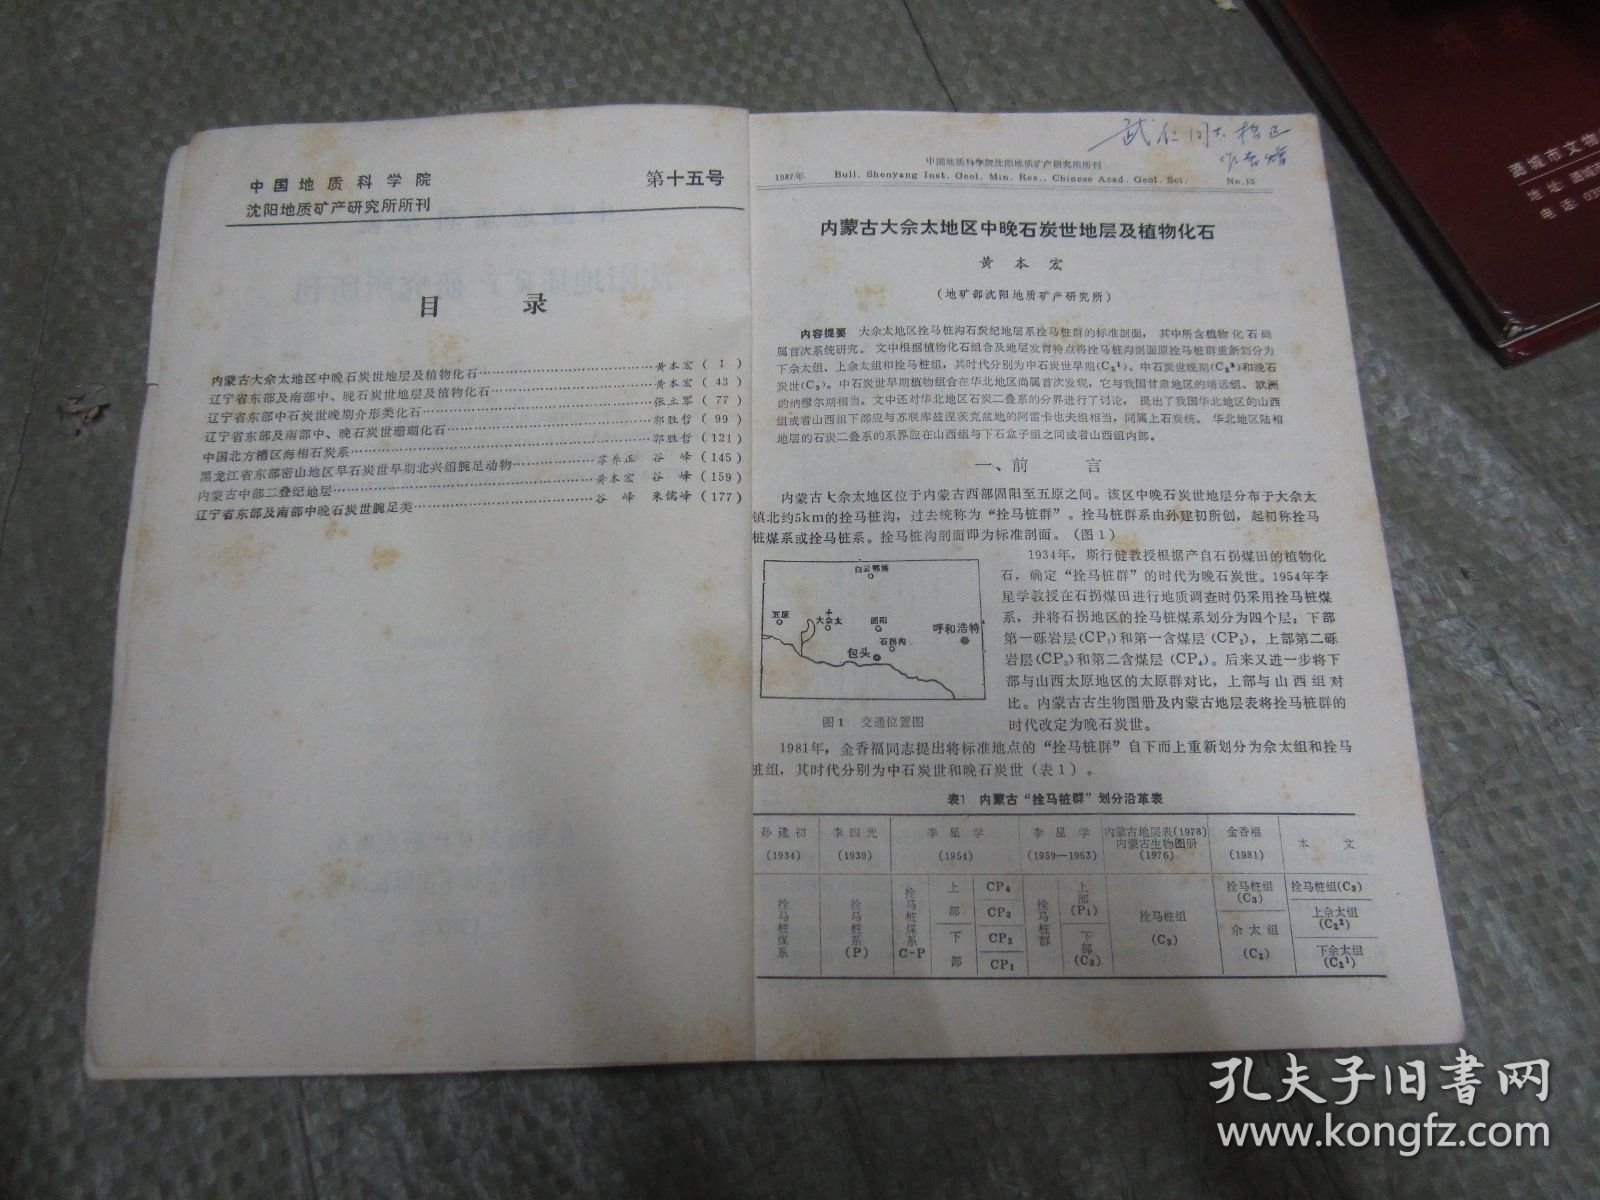 中国地质科学院
沈阳地质矿产研究所所刊
第十五号
目 录
内蒙古大佘太地区中晚石炭世地层及植物化石……黄本宏(1)
辽宁省东部及南部中、晚石炭世地层及植物化石……黄本宏(43)
辽宁省东部中石炭世晚期介形类化石……张立军(77)
辽宁省东部及南部中、晚石炭世珊瑚化石……郭胜哲(99)
中国北方槽区海相石炭系……郭胜哲(121)
黑龙江省东部密山地区早石炭世早期北兴组腕足动物……苏养正 谷峰(145)
内蒙古中部二叠纪地层……黄本宏 谷峰(159)
辽宁省东部及南部中晚石炭世腕足类……谷峰 朱儒峰(177)
武仁同志指正
作者赠
中国地质科学院沈阳地质矿产研究所所刊
1987年 Bull. Shenyang Inst. Geol. Min. Res., Chinese Acad. Geol. Sci. No.15
内蒙古大佘太地区中晚石炭世地层及植物化石
黄本宏
(地矿部沈阳地质矿产研究所)
内容提要 大佘太地区拴马桩沟石炭纪地层系拴马桩群的标准剖面，其中所含植物化石尚
属首次系统研究。文中根据植物化石组合及地层发育特点将拴马桩沟剖面原拴马桩群重新划分为
下佘太组、上佘太组和拴马桩组，其时代分别为中石炭世早期(C₂¹)、中石炭世晚期(C₂²)和晚石
炭世(C₃)。中石炭世早期植物组合在华北地区尚属首次发现，它与我国甘肃地区的靖远组、欧洲
的纳缪尔期相当。文中还对华北地区石炭二叠系的分界进行了讨论，提出了我国华北地区的山西
组或者山西组下部应与苏联库兹涅茨克盆地的阿雷卡也夫组相当，同属上石炭统。华北地区陆相
地层的石炭二叠系的系界应在山西组与下石盒子组之间或者山西组内部。
一、前 言
内蒙古大佘太地区位于内蒙古西部固阳至五原之间。该区中晚石炭世地层分布于大佘太
镇北约5km的拴马桩沟，过去统称为“拴马桩群”。拴马桩群系由孙建初所创，起初称拴马
桩煤系或拴马桩系。拴马桩沟剖面即为标准剖面。(图1)
1934年，斯行健教授根据产自石拐煤田的植物化
石，确定“拴马桩群”的时代为晚石炭世。1954年李
星学教授在石拐煤田进行地质调查时仍采用拴马桩煤
系，并将石拐地区的拴马桩煤系划分为四个层：下部
第一砾岩层(CP₁)和第一含煤层(CP₂)，上部第二砾
岩层(CP₃)和第二含煤层(CP₄)。后来又进一步将下
部与山西太原地区的太原群对比，上部与山西组对
比。内蒙古古生物图册及内蒙古地层表将拴马桩群的
时代改定为晚石炭世。
白云鄂博
五原
大佘太
固阳
石拐沟
呼和浩特
包头
图1 交通位置图
1981年，金香福同志提出将标准地点的“拴马桩群”自下而上重新划分为佘太组和拴马
桩组，其时代分别为中石炭世和晚石炭世（表1）。
表1 内蒙古“拴马桩群”划分沿革表
孙建初 (1934)
李四光 (1939)
李星学 (1954)
李星学 (1959—1963)
内蒙古地层表(1978) 内蒙古生物图册 (1976)
金香福 (1981)
本文
拴马桩煤系
拴马桩系 (P)
拴马桩煤系 C-P
上部
CP₄
CP₃
下部
CP₂
CP₁
拴马桩群
上部 (P₁)
下部 (C₃)
拴马桩组 (C₃)
拴马桩组 (C₃)
佘太组 (C₂)
拴马桩组(C₃)
上佘太组 (C₂²)
下佘太组 (C₂¹)
蒲城市文物
地址:蒲城市
电话:035
孔夫子旧书网
www.kongfz.com